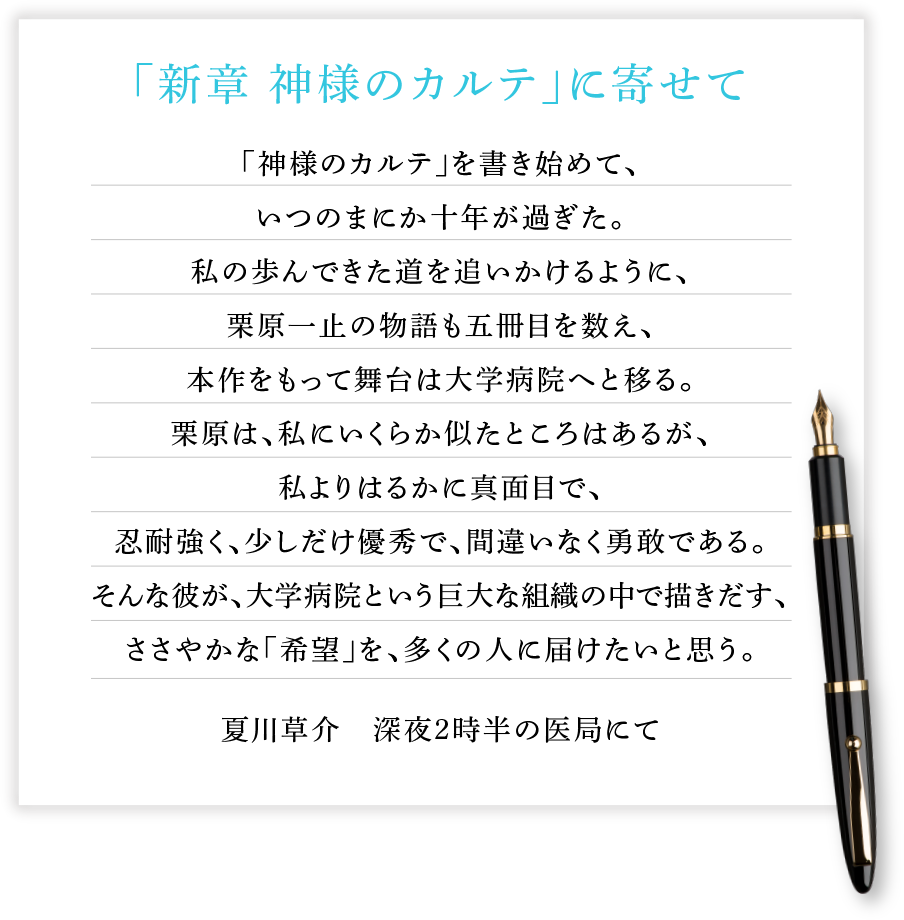 「新章 神様のカルテ」に寄せて
「神様のカルテ」を書き始めて、
いつのまにか十年が過ぎた。
私の歩んできた道を追いかけるように、
栗原一止の物語も五冊目を数え、
本作をもって舞台は大学病院へと移る。
栗原は、私にいくらか似たところはあるが、
私よりはるかに真面目で、
忍耐強く、少しだけ優秀で、間違いなく勇敢である。
そんな彼が、大学病院という巨大な組織の中で描きだす、
ささやかな「希望」を、多くの人に届けたいと思う。
夏川草介　深夜2時半の医局にて